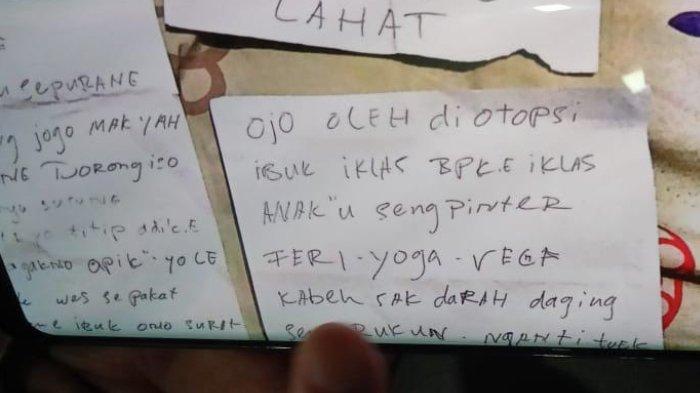 LAHAT
SEPURANE
jogo MAK YAH
NE DORONG iso
titip adik.E
apik" . yo LE
was sepakat
ibuk ono surat
OJO OLEH diotopsi
iBUK iKLAS BPK.E iKLAS
ANAK"u seng PINTER
FERI - yoga - VEGA
KABEH SAK daRAH daging
RUKUN . NgANTi tuEk